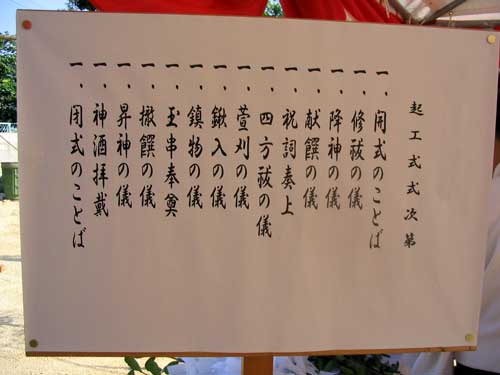 起工式式次第
一、開式のことば
一、修祓の儀
一、降神の儀
一、献饌の儀
一、祝詞奏上
一、四方祓の儀
一、萱刈の儀
一、鍬入の儀
一、鎮物の儀
一、玉串奉奠
一、撤饌の儀
一、昇神の儀
一、神酒拝戴
一、閉式のことば